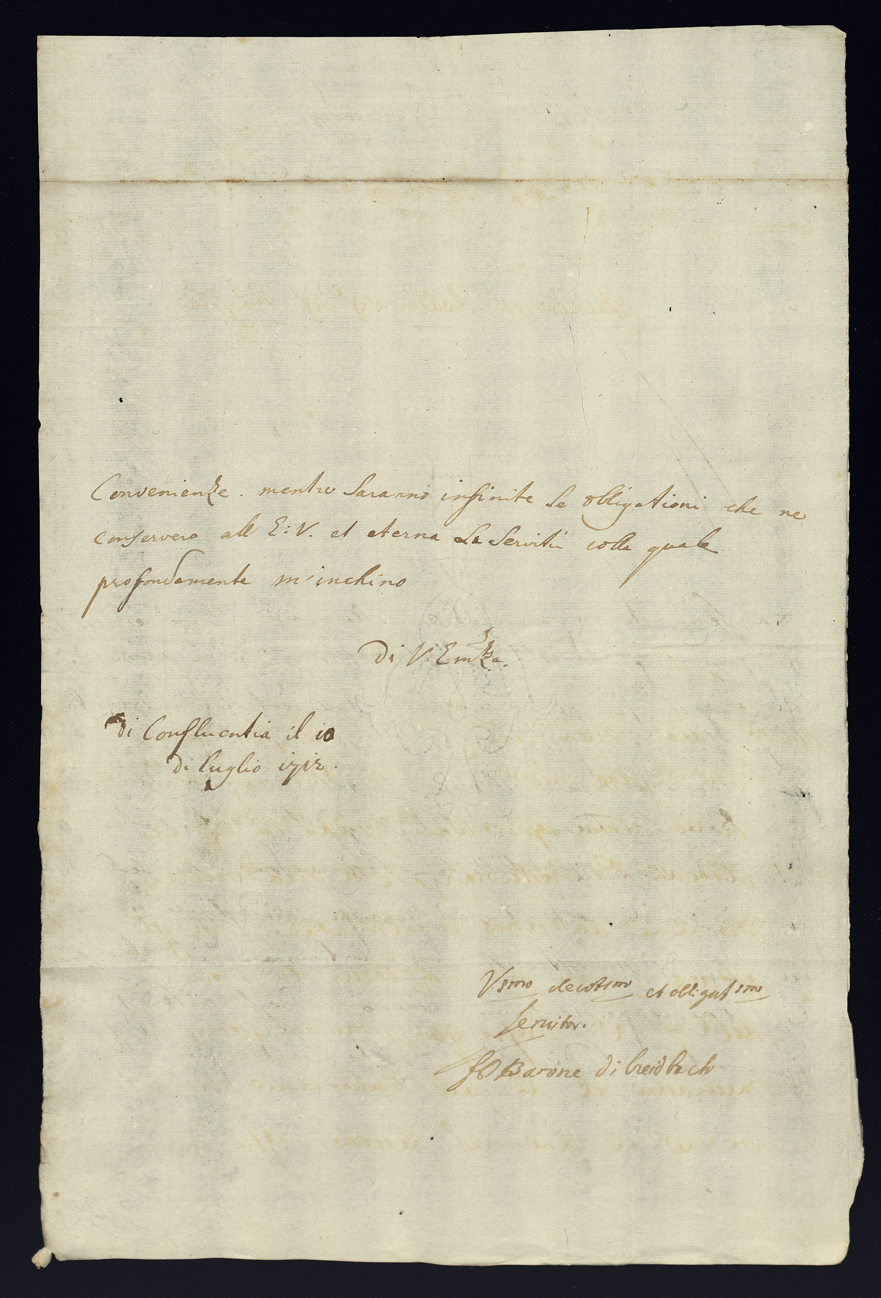 Convenienze. mentre saranno infinite le obligationi che ne
conservero all E: V. et eterna La Servitù colla quale
profondamente m'inchino
Di V. Emza.
Di Confluentia il 10
di luglio 1712.
Vsmo devotsmo et obligatsmo
servitor.
Barone di breidbach